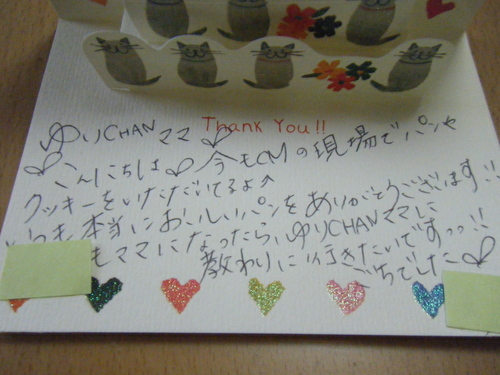 ゆりCHANママ Thank You!!
こんにちは 今もCMの現場でパンや
クッキーをいただいてるよ^
も本当においしいパンをありがとうございます!!
もママになったら、ゆりCHANママに
教わりに行きたいですっっ!!
ごちでした